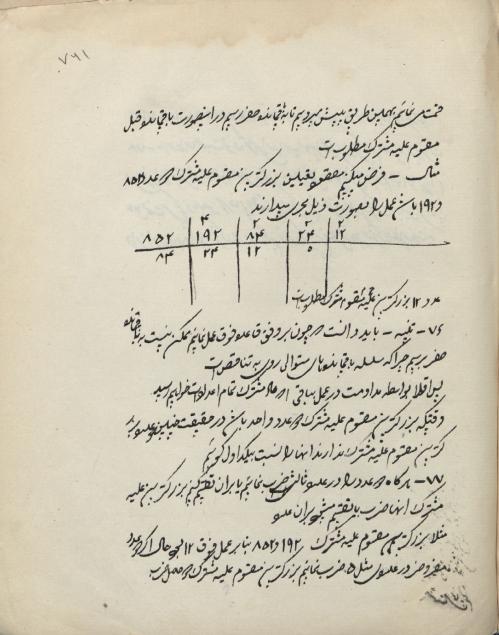 ۷۶۱
قسمت می‌نمائیم بهمین طریق پیش میرویم تا به باقیمانده صفر رسیم در اینصورت باقیمانده قبل
مقسوم علیه مشترک مطلوب است
مثال – فرض میکنیم مقصود تعیین بزرگترین مقسوم علیه مشترک دو عدد ۸۵۲
و ۱۹۲ باشد عمل را بصورت ذیل مجری میدارند
۴ ۲ ۳ ۲
۸۵۲ ۱۹۲ ۸۴ ۲۴ ۱۲
۸۴ ۲۴ ۱۲ ۰
و ۱۲ بزرگترین مقسوم علیه مشترک مطلوب است
۷۶ – تنبیه – باید دانست که چون بر وفق قاعده فوق عمل نمائیم ممکن نیست بباقیمانده
صفر نرسیم چرا که سلسله باقیمانده‌های متوالی رو به تناقص است
پس اقلا بواسطه مداومت در عمل بباقی ۱ که عاد مشترک تمام اعداد است خواهیم رسید
وقتیکه بزرگترین مقسوم علیه مشترک دو عدد واحد باشد در حقیقت چنین
مقسوم علیه مشترک ندارند آنها را نسبت بیکدیگر اول گوئیم
۷۷ – هرگاه دو عدد را در عددی ثالث ضرب نمائیم یا بر آن تقسیم کنیم بزرگترین مقسوم علیه
مشترک آنها ضرب یا تقسیم میشود بر آن عدد
مثلا بزرگترین مقسوم علیه مشترک ۱۹۲ و ۸۵۲ بنا بر عمل فوق ۱۲ بود حال اگر دو عدد
مفروض در عددی مثل ۵ ضرب نمائیم بزرگترین مقسوم علیه مشترک دو حاصل ضرب